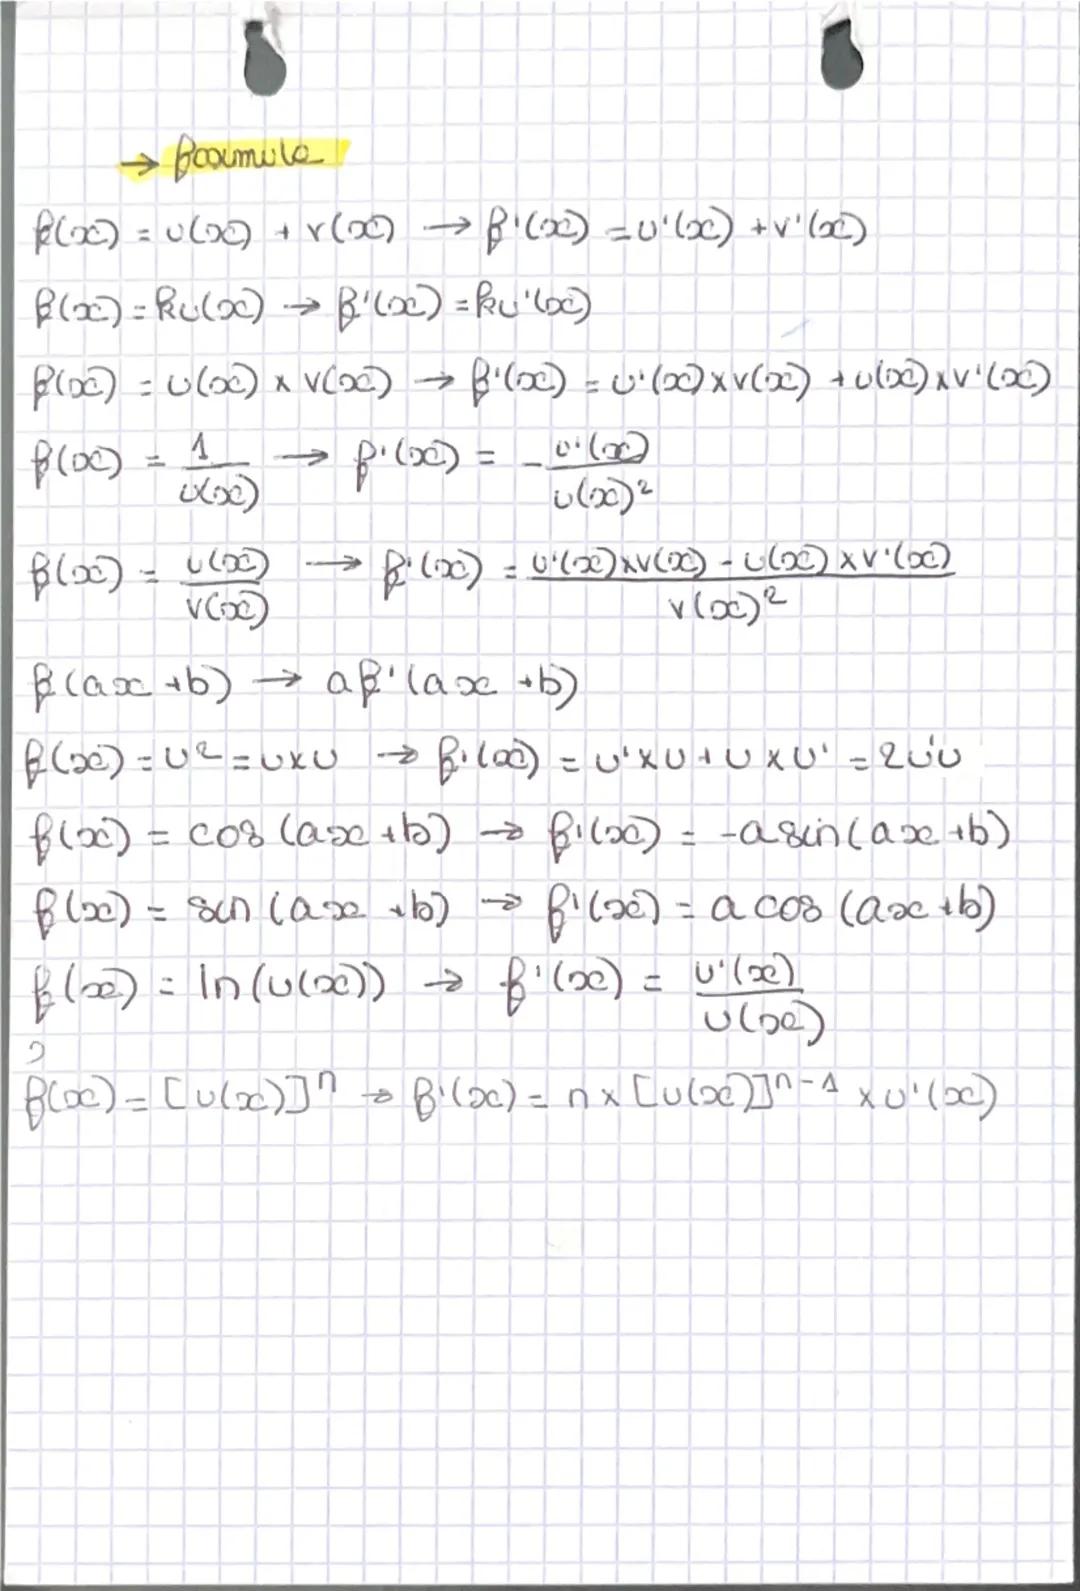 → formule
f(x) = u(x) + v(x) → f'(x) = u'(x) + v'(x)
f(x) = ku(x) → f'(x) = ku'(x)
f(x) = u(x) × v(x) → f'(x) = u'(x) × v(x) + u(x) × v'(x)
f(x) = 1/u(x) → f'(x) = - u'(x)/u(x)²
f(x) = u(x)/v(x) → f'(x) = u'(x) × v(x) - u(x) × v'(x)/v(x)²
f(ax + b) → af'(ax + b)
f(x) = u² = u × u → f'(x) = u' × u + u × u' = 2u'u
f(x) = cos (ax + b) → f'(x) = -a sin(ax + b)
f(x) = sin (ax + b) → f'(x) = a cos (ax + b)
f(x) = ln(u(x)) → f'(x) = u'(x)/u(x)
f(x) = [u(x)]ⁿ → f'(x) = n × [u(x)]ⁿ⁻¹ × u'(x)